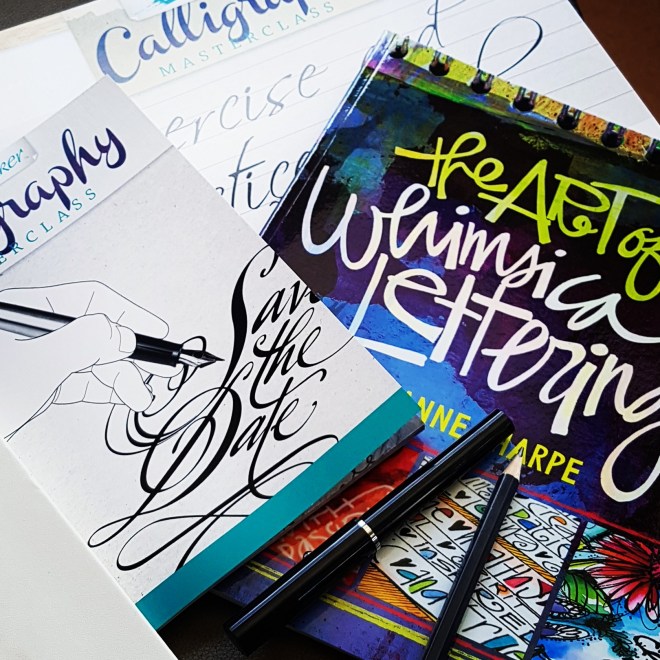 Calligrap
MASTERCLASS
ercise
ker
graphy
ERCLASS
Save
the
Date
the ART of
Whimsical
Lettering
ANNE SHARPE
passion